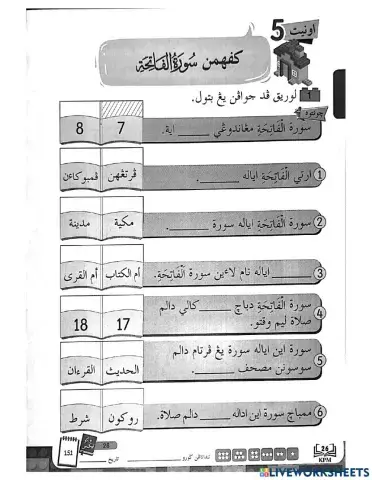 اونيت 5
کفهمن سورة الفاتحة
1 لوريق ڤد جواڤن يڠ بتول.
چونتوه
سورة الْفَاتِحَةِ مڠاندوڠي ______ اية.
7 8
1 ارتي الْفَاتِحَةِ اياله ______.
ڤمبوکاءن
2 سورة الْفَاتِحَةِ اياله سورة ______.
مکية مدينة
3 ______ اياله نام لاءين سورة الْفَاتِحَةِ.
أم الكتاب أم القرى
4 سورة الْفَاتِحَةِ دباچ ______ کالي دالم
صلاة ليم وقتو.
17 18
5 سورة اين اياله سورة يڠ ڤرتام دالم
سوسونن مصحف ______.
الحديث القرءان
6 ممباچ سورة اين اداله ______ دالم صلاة.
روکون شرط
151
26
تاريخ
26
KPM
LIVEWORKSHEETS